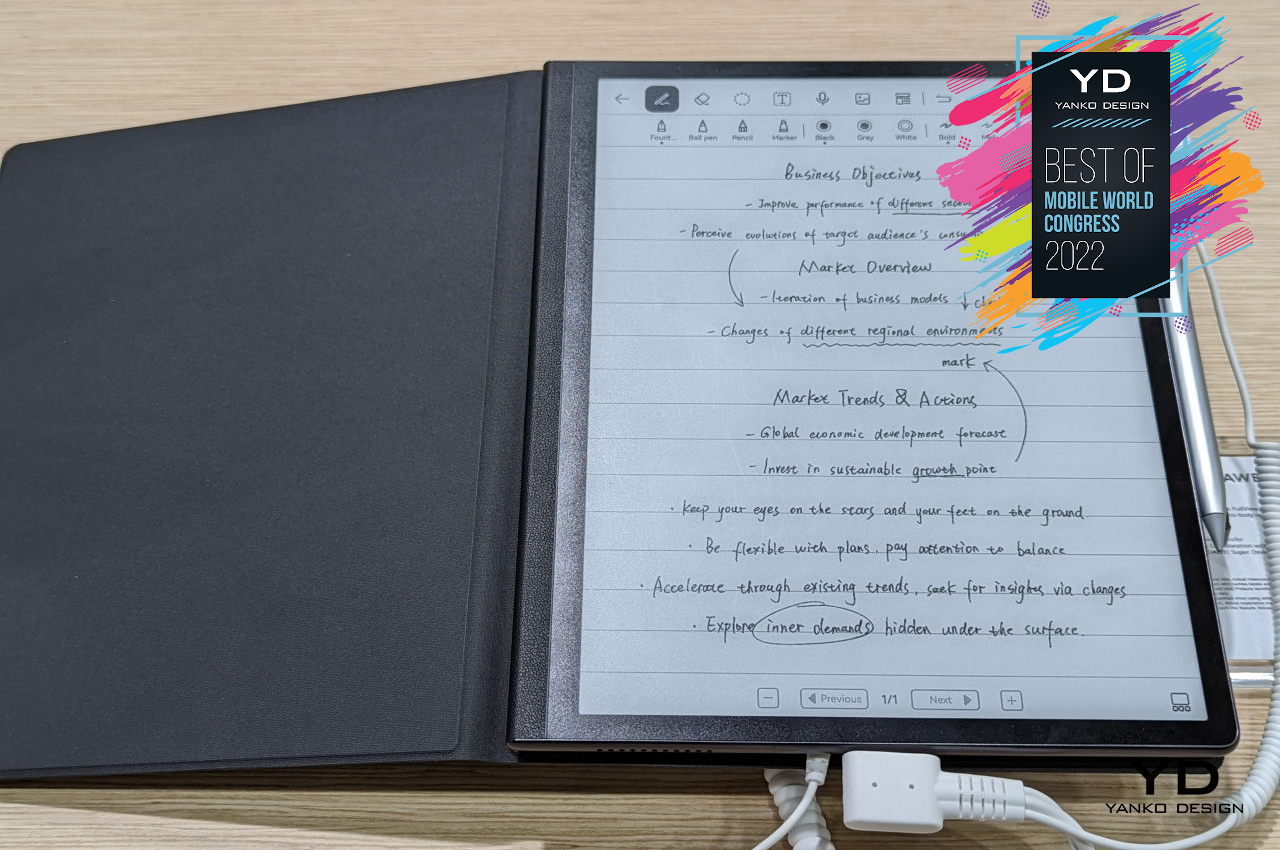 YD
YANKO DESIGN
BEST OF
MOBILE WORLD
CONGRESS
2022
Fount...
Ball pen
Pencil
Marker
Black
Gray
White
Bold
Business Objectives
- Improve performance of different
- Perceive evolutions of target audience's
Market Overview
- Iteration of business models ↓
- Changes of different regional environments
mark
Market Trends & Actions
- Global economic development forecast
- Invest in sustainable growth point
· Keep your eyes on the stars and your feet on the ground.
· Be flexible with plans, pay attention to balance
· Accelerate through existing trends, seek for insights via changes.
· Explore inner demands hidden under the surface.
Previous 1/1 Next
YD
YANKO DESIGN